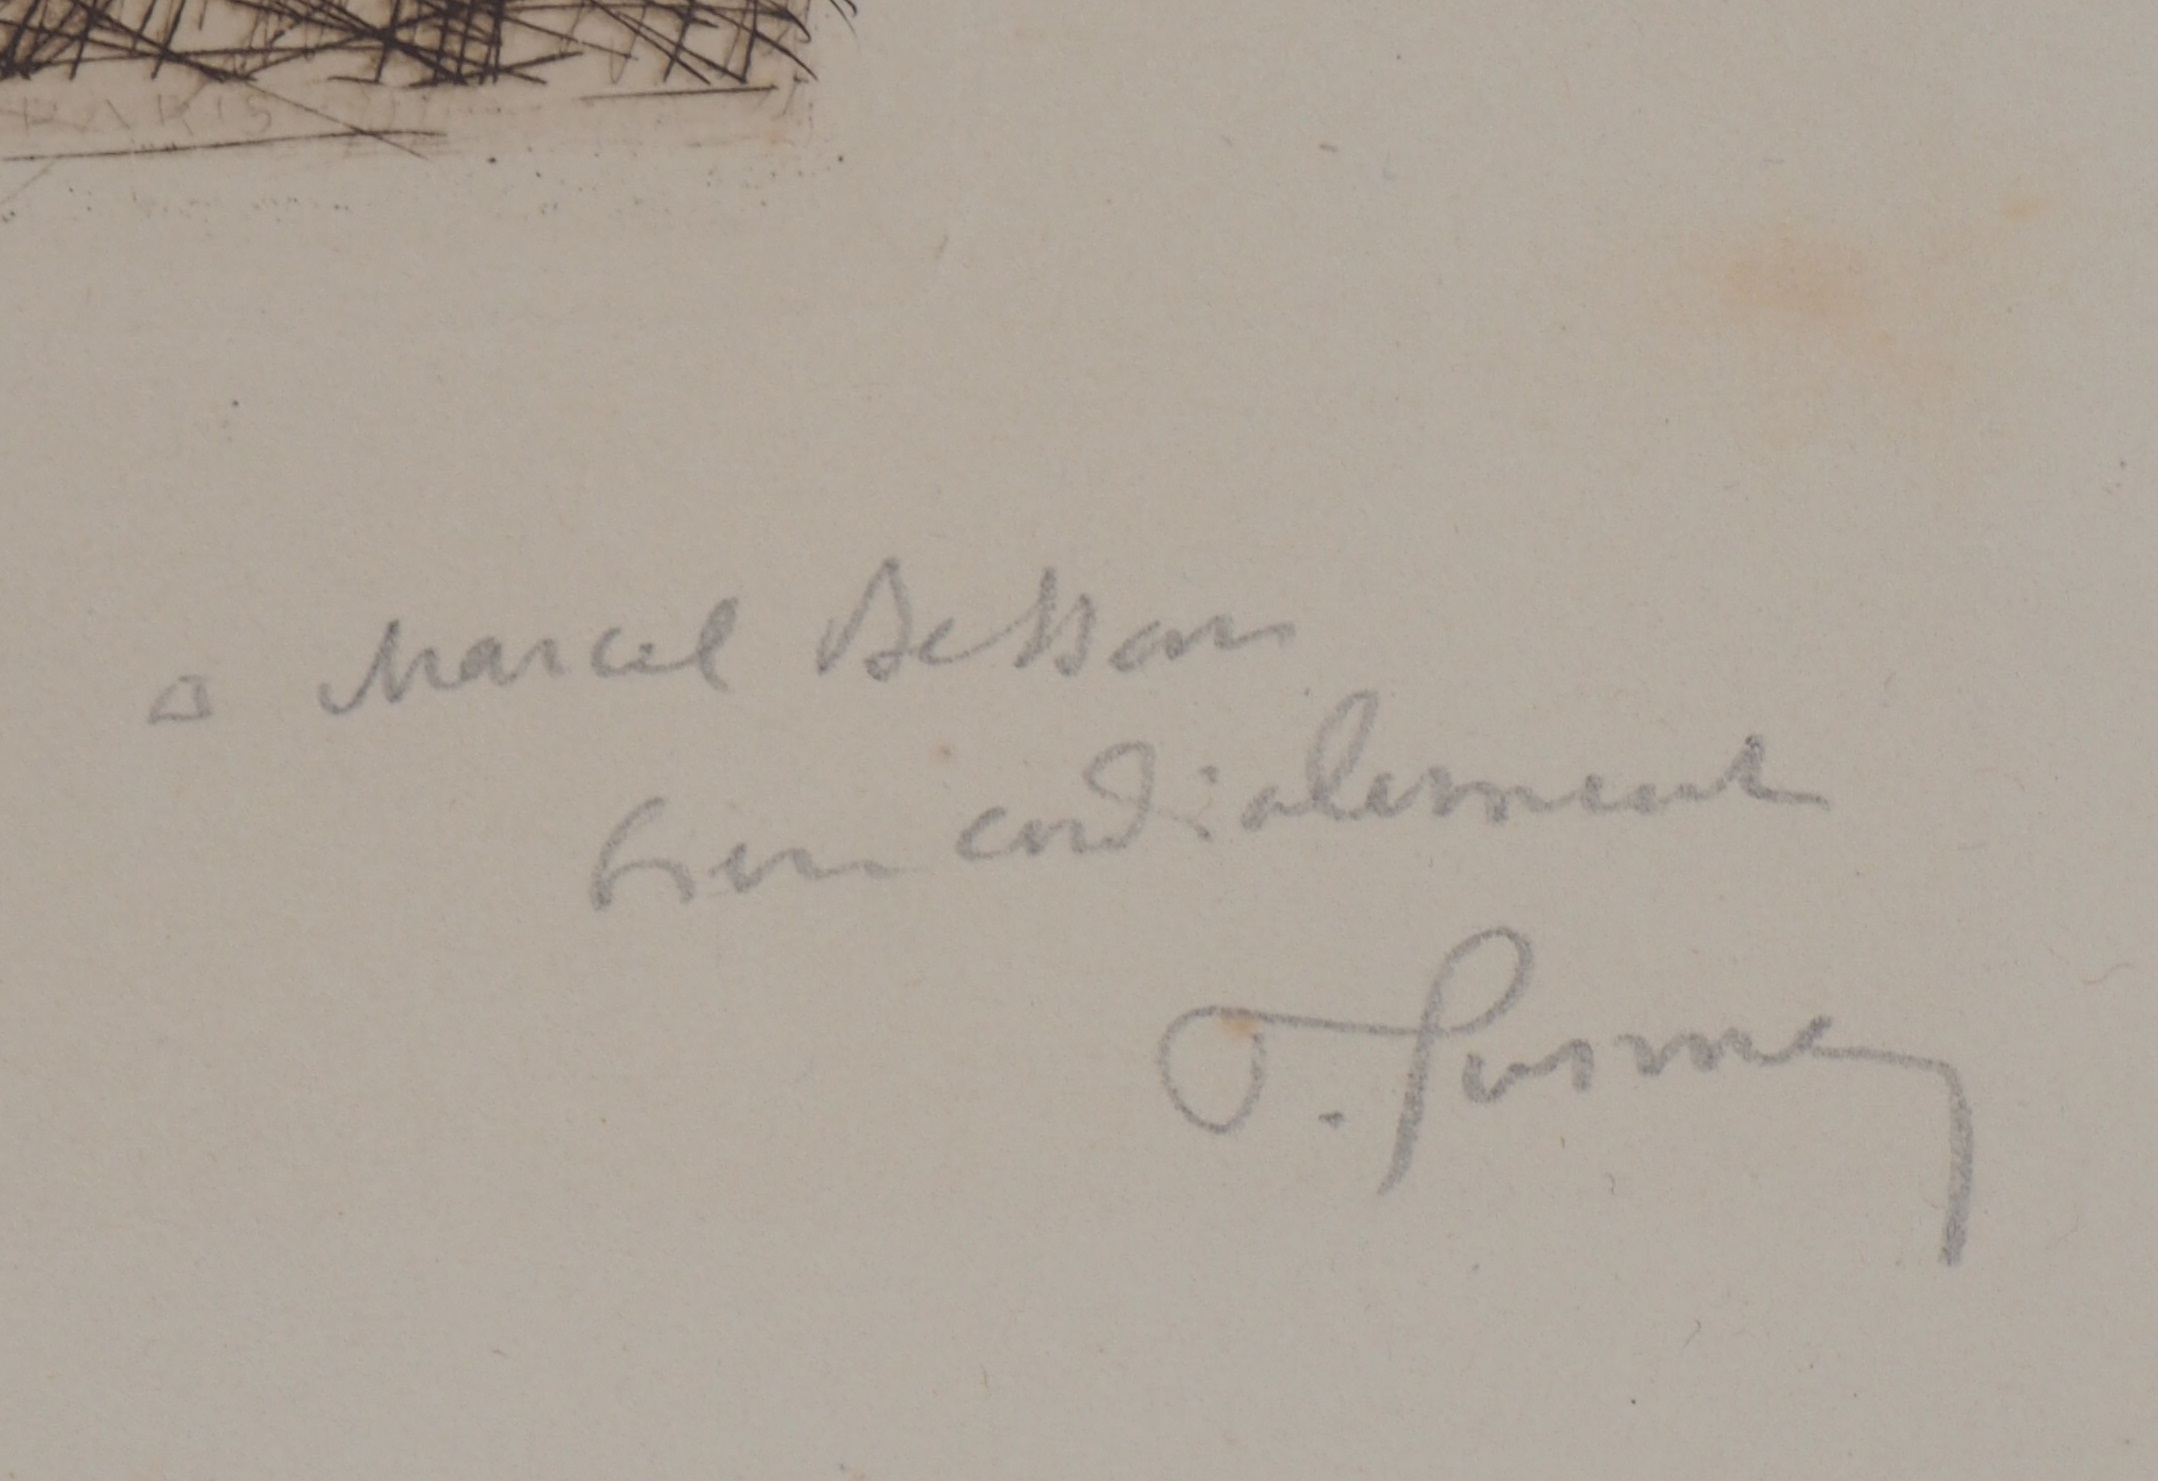 PARIS
a Marcel Besson
bien cordialement